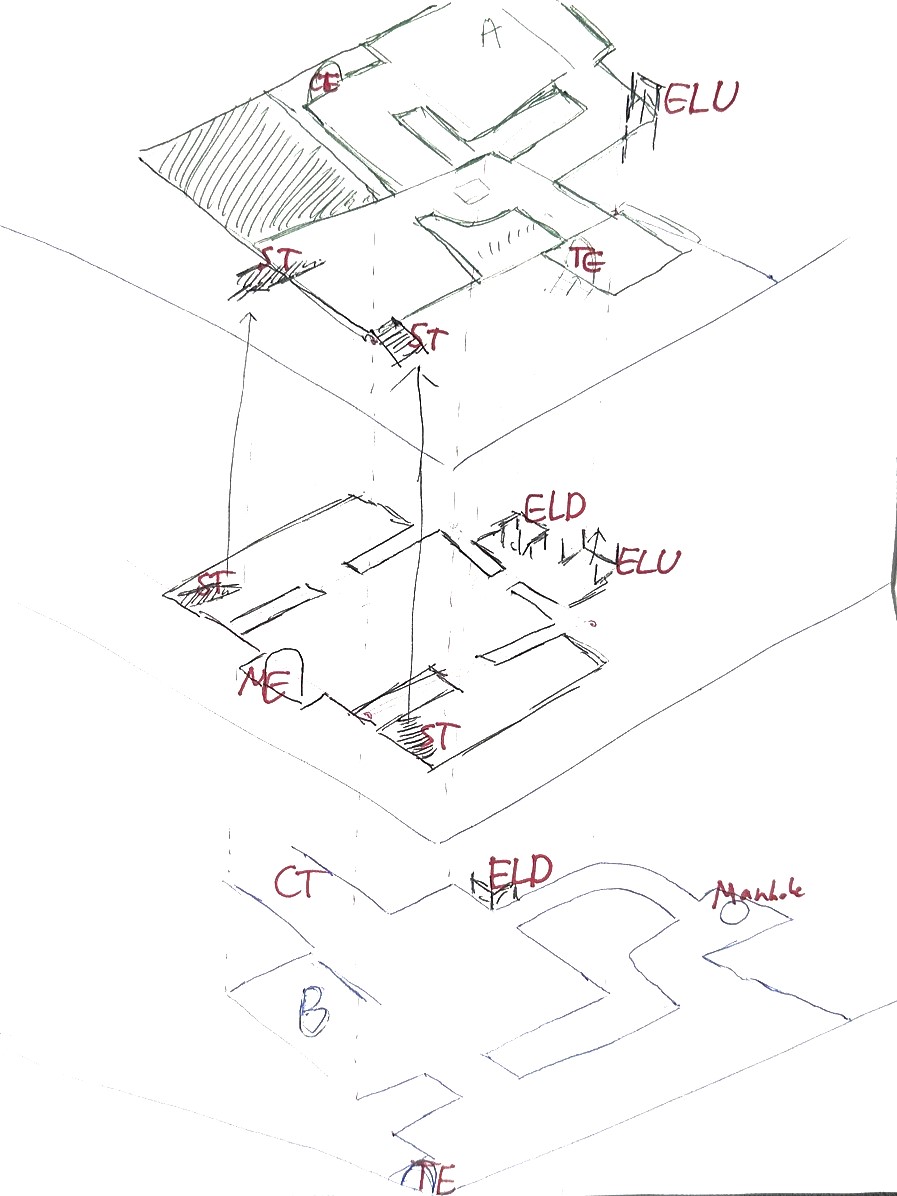 A
CE
ELU
ST
TE
ST
ELD
ELU
ST
ME
ST
CT
ELD
Manhole
B
TE